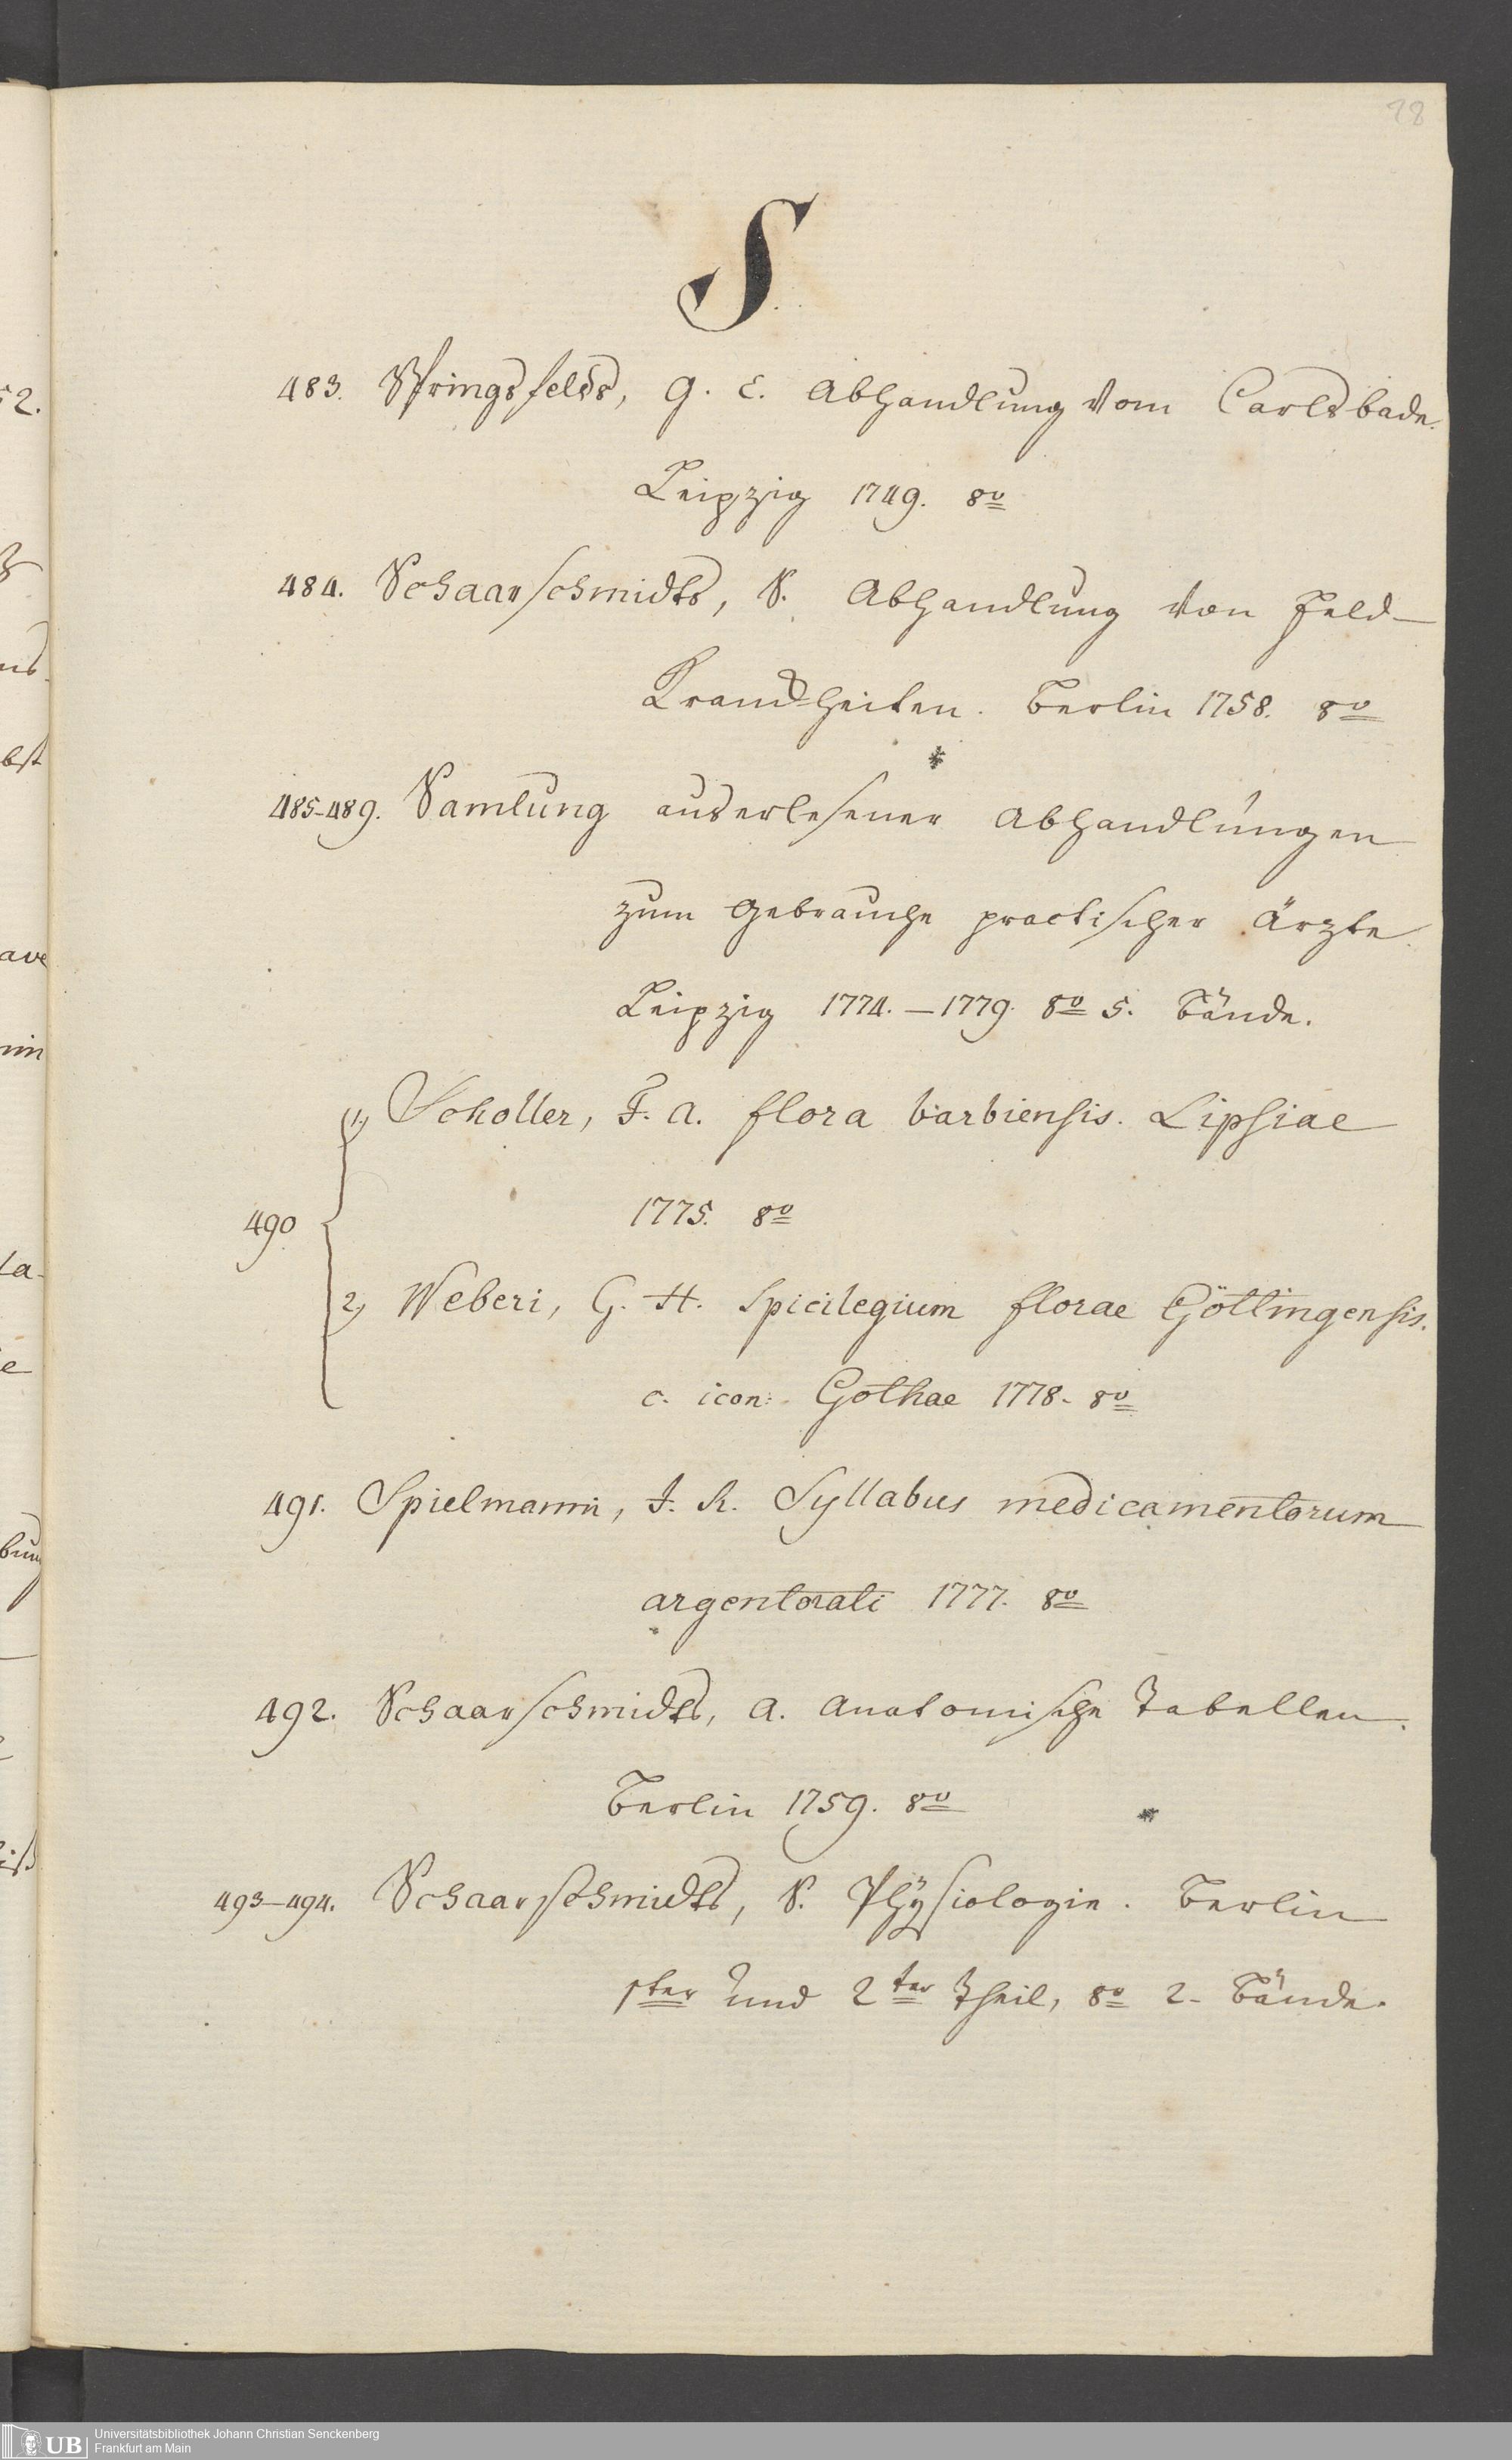 18
S.
483. Springsfelds, G. C. Abhandlung vom Carlsbade.
Leipzig 1749. 8º
484. Schaarschmidts, S. Abhandlung von Feld-
Kranckheiten. Berlin 1758. 8º
*
485-489. Samlung auserlesener Abhandlungen
zum Gebrauche practischer Ärzte
Leipzig 1774.-1779. 8º 5. Bände.
1, Scholler, F. A. flora barbiensis. Lipsiae
1775. 8º
490
2, Weberi, G. H. Spicilegium florae Göttingensis.
c. icon: Gothae 1778. 8º
491. Spielmanni, J. R. Syllabus medicamentorum
argentorati 1777. 8º
492. Schaarschmidts, A. Anatomische Tabellen.
Berlin 1759. 8º *
493-494. Schaarschmidts, S. Physiologie. Berlin
1ter und 2ter Theil, 8º 2. Bände.
UB Universitätsbibliothek Johann Christian Senckenberg
Frankfurt am Main